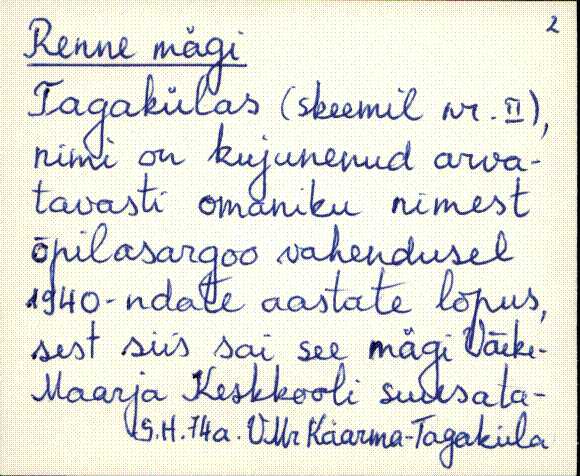 2
Renne mägi
Tagakülas (skeemil nr. II),
nimi on kujunenud arva-
tavasti omaniku nimest
õpilasargoo vahendusel
1940-ndate aastate lõpus,
sest siis sai see mägi Väike-
Maarja Keskkooli suusata-
G.H. 74a. VMr Käärma-Tagaküla